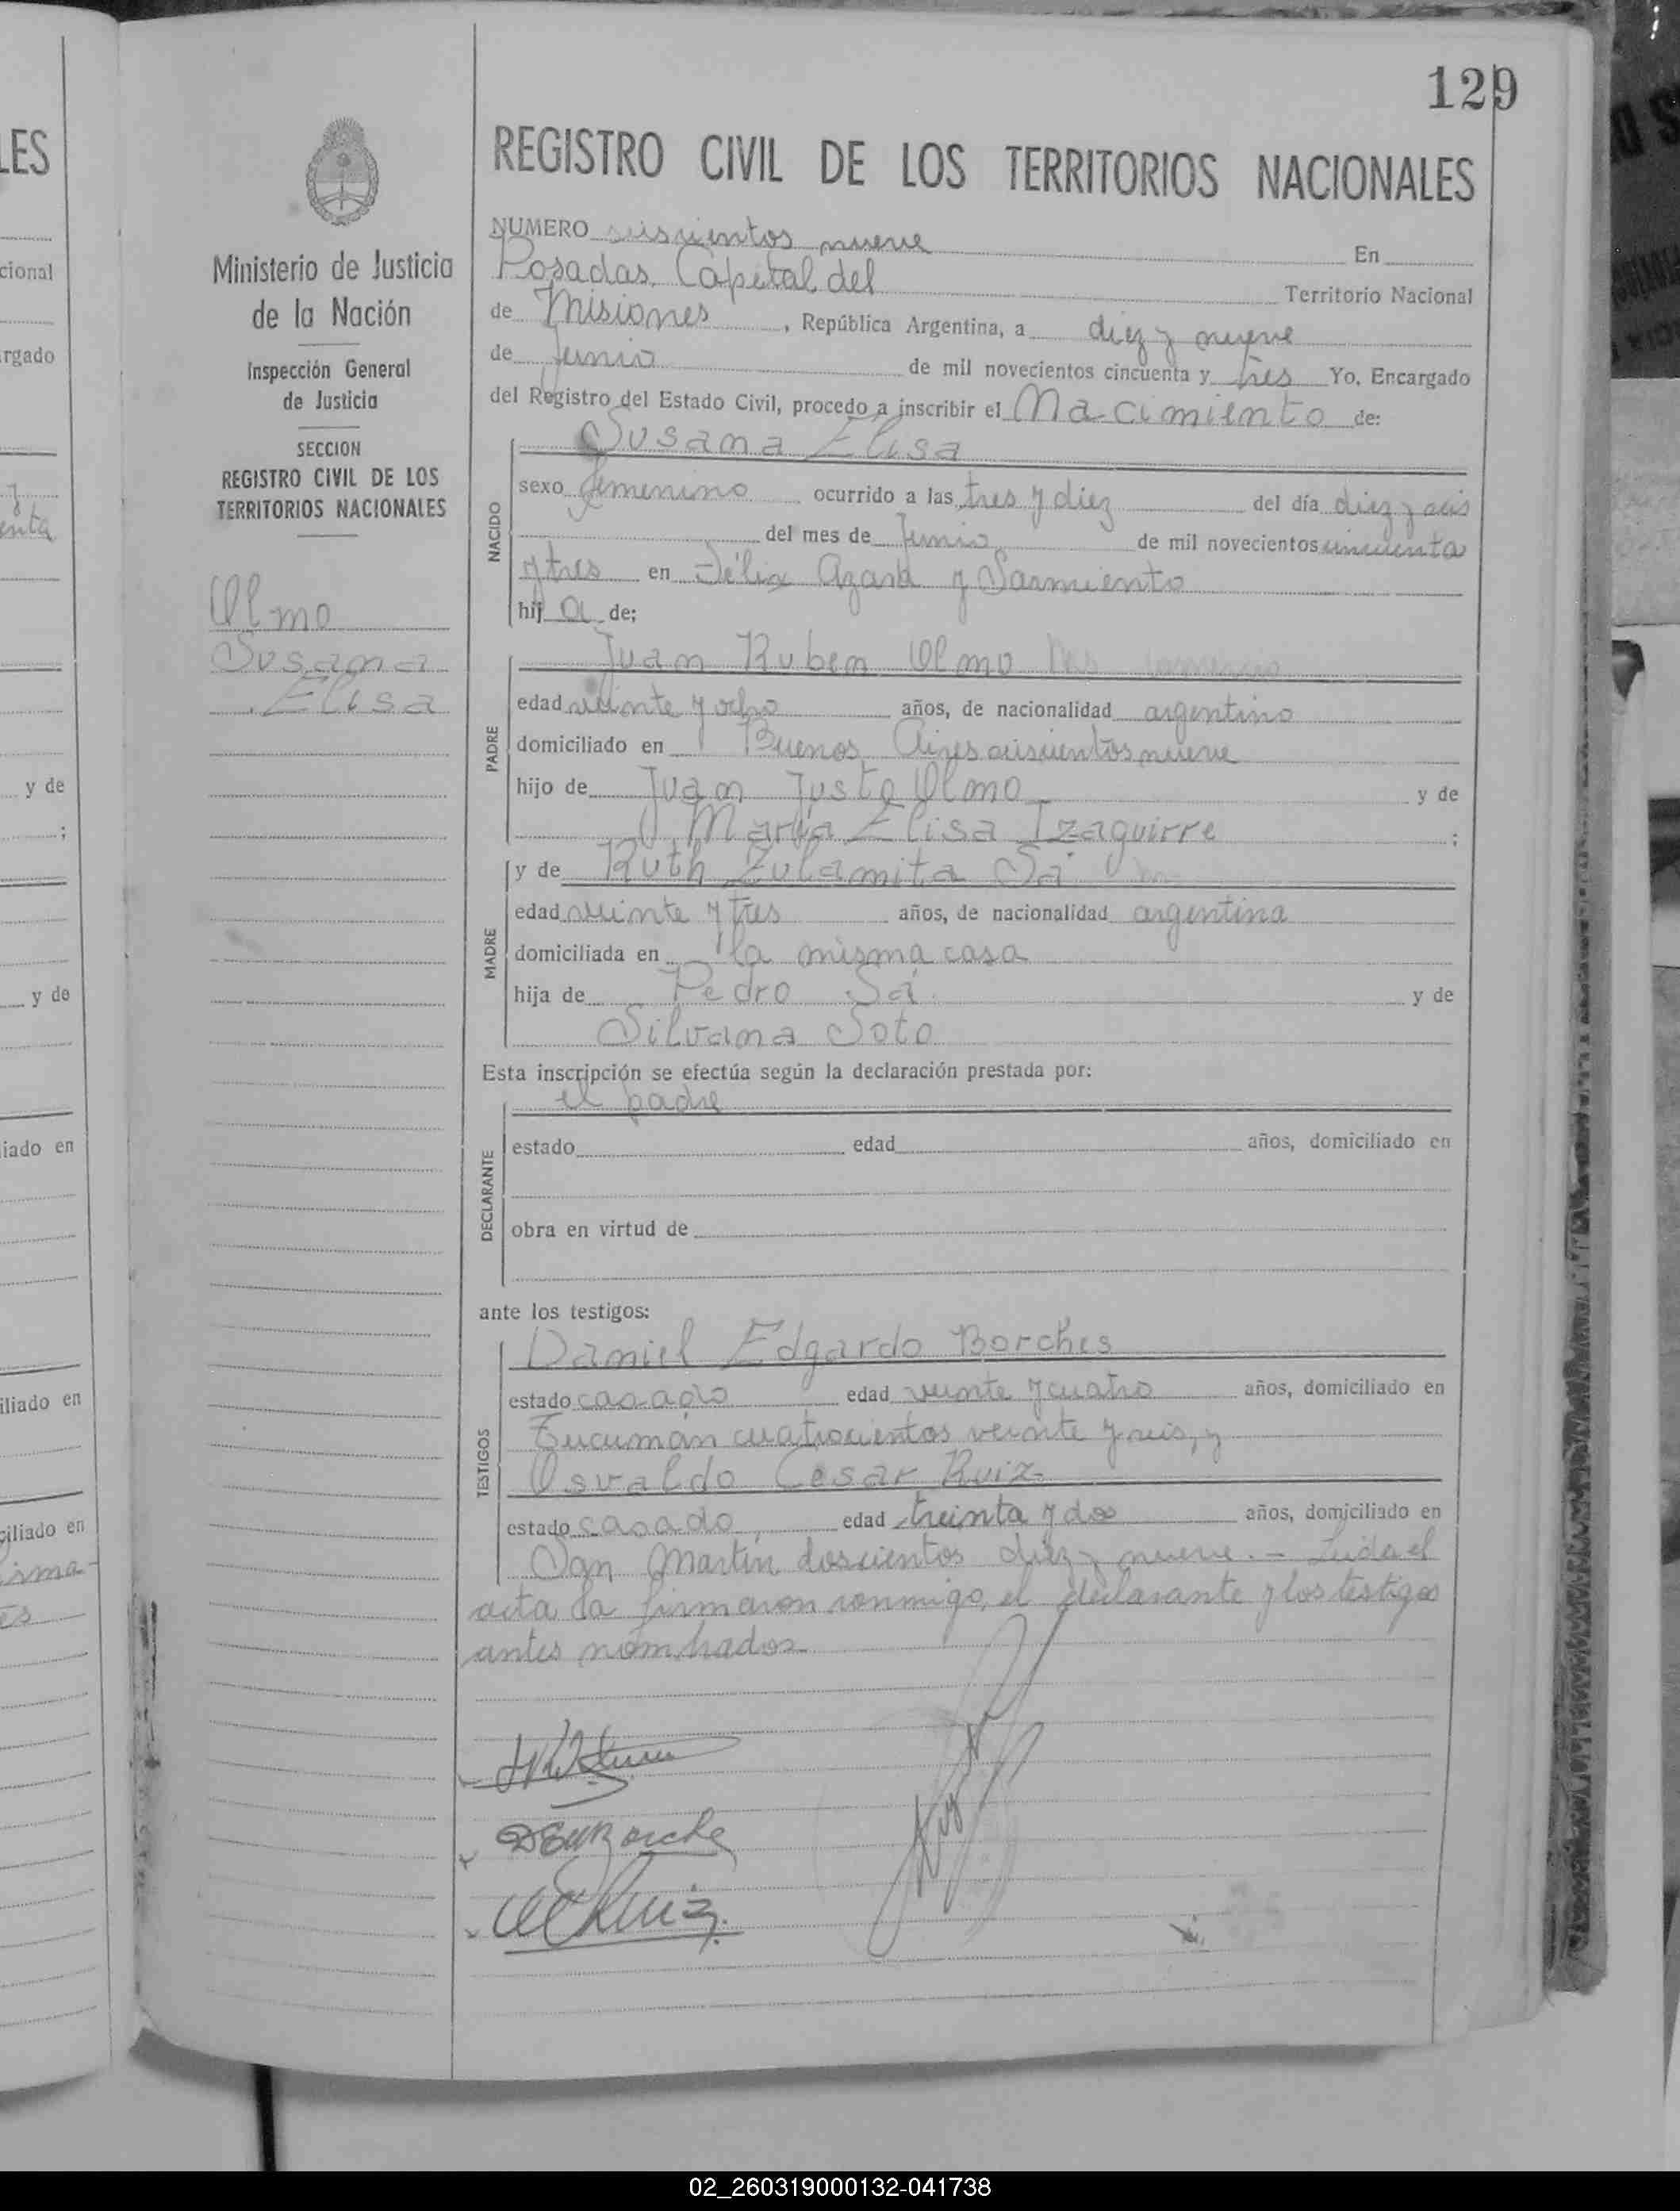 129
REGISTRO CIVIL DE LOS TERRITORIOS NACIONALES
Ministerio de Justicia
de la Nación
Inspección General
de Justicia
SECCION
REGISTRO CIVIL DE LOS
TERRITORIOS NACIONALES
Olmo
Susana
Elisa
NUMERO seiscientos nueve En
Posadas, Capital del Territorio Nacional
de Misiones, República Argentina, a diez y nueve
de Junio de mil novecientos cincuenta y tres Yo, Encargado
del Registro del Estado Civil, procedo a inscribir el Nacimiento de:
Susana Elisa
NACIDO
sexo femenino ocurrido a las tres y diez del día diez y seis
del mes de Junio de mil novecientos cincuenta
y tres en Félix Azara y Sarmiento
hija de;
PADRE
Juan Ruben Olmo
edad veinte y ocho años, de nacionalidad argentino
domiciliado en Buenos Aires seiscientos nueve
hijo de Juan Justo Olmo y de
María Elisa Izaguirre ;
y de Ruth Zulamita Sá
MADRE
edad veinte y tres años, de nacionalidad argentina
domiciliada en la misma casa
hija de Pedro Sá y de
Silvana Soto
Esta inscripción se efectúa según la declaración prestada por:
el padre
DECLARANTE
estado edad años, domiciliado en
obra en virtud de
ante los testigos:
TESTIGOS
Daniel Edgardo Borches
estado casado edad veinte y cuatro años, domiciliado en
Tucumán cuatrocientos veinte y seis, y
Osvaldo Cesar Ruiz
estado casado, edad treinta y dos años, domiciliado en
San Martín doscientos diez y nueve. - Leida el
acta la firmaron conmigo, el declarante y los testigos
antes nombrados
LES
cional
rgado
y
enta
y de
;
y de
liado en
iliado en
ciliado en
isma
es
02_260319000132-041738